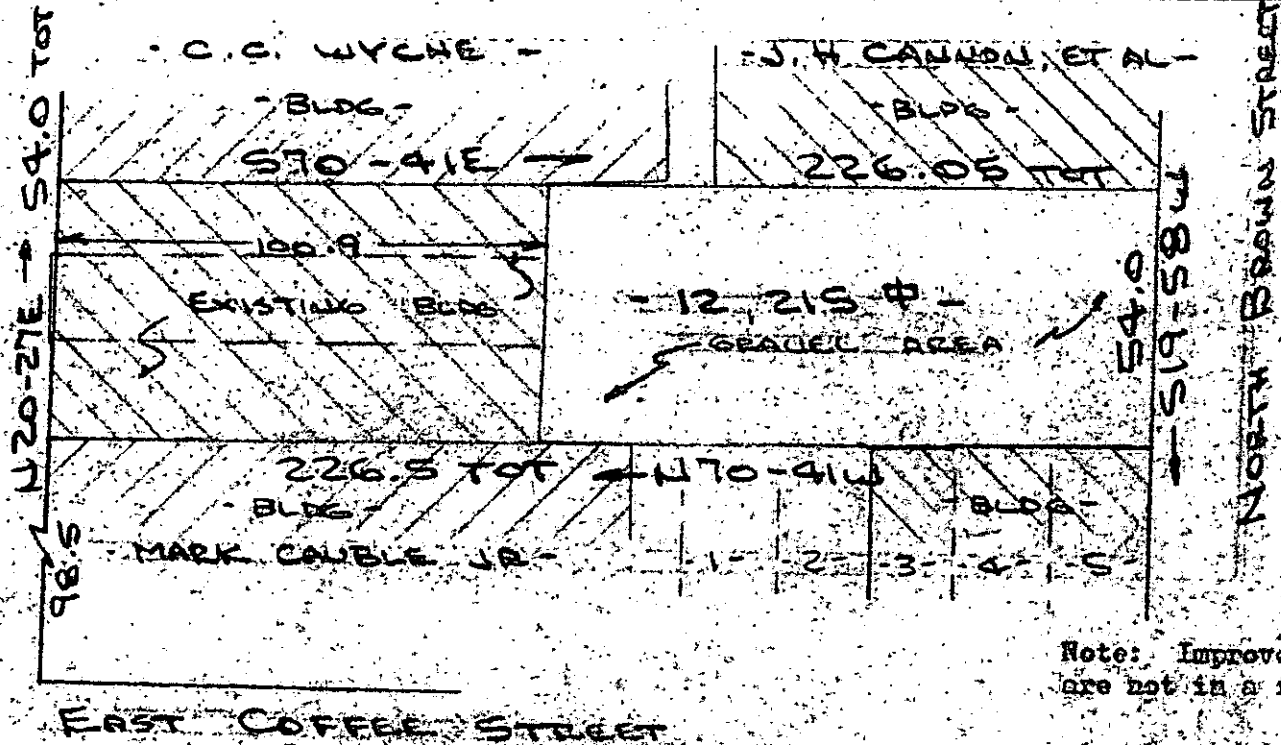 - C.C. WYCHE -
- J. H CANNON, ET AL -
- BLDG -
- BLDG -
S70-41E
226.05 TOT
N20-27E → 54.0 TOT
100.9
EXISTING BLDG
- 12,215 ⌽ -
GRAVEL AREA
54.0
S19-58W
NORTH BROWN STREET
226.5 TOT
N70-41W
- BLDG -
- BLDG -
- MARK CAUBLE JR -
- 1 - - 2 - - 3 - - 4 - - 5 -
98.5
Note: Improve
are not in a
EAST COFFEE STREET